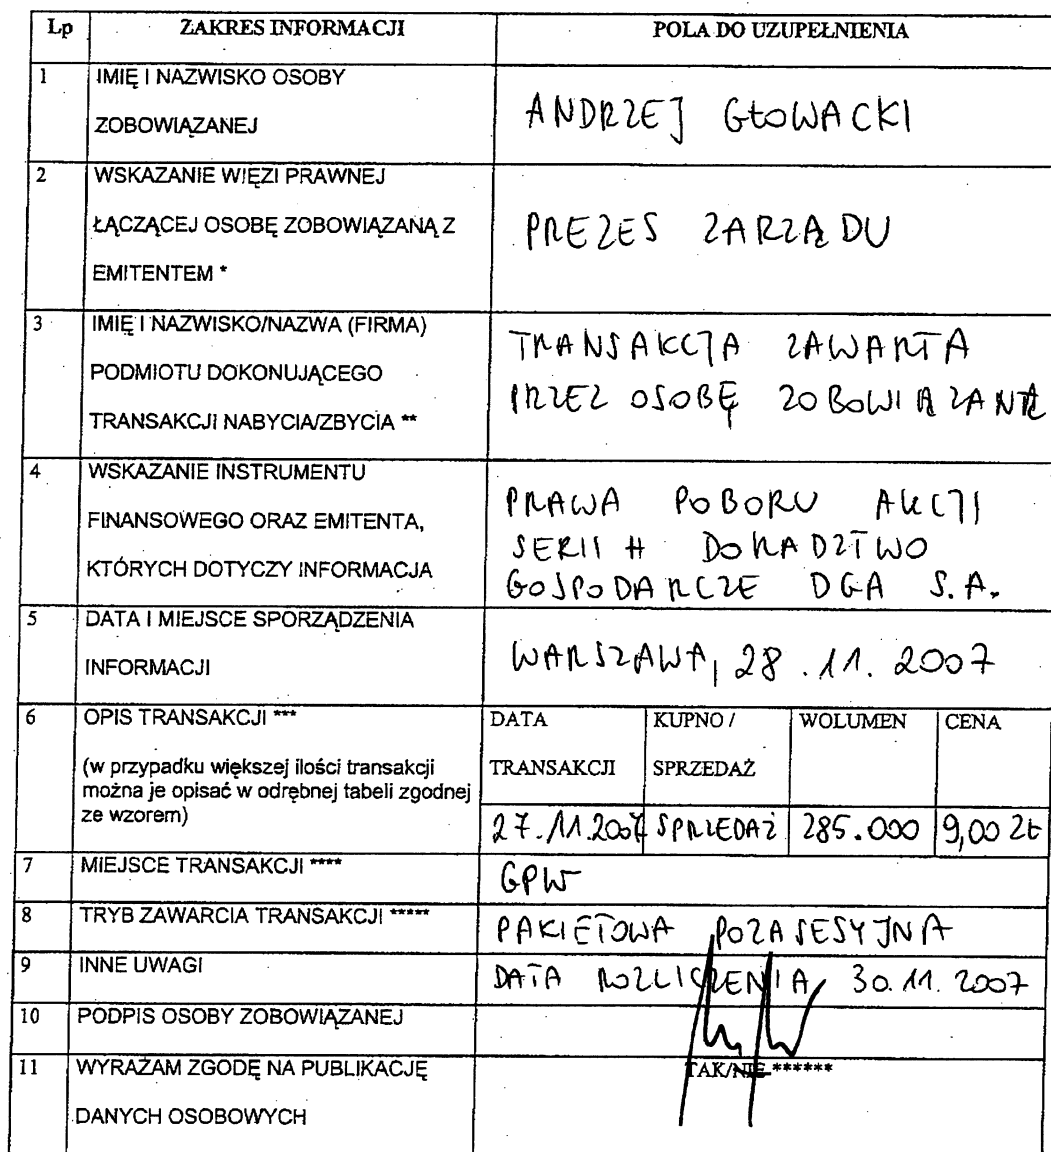 Lp ZAKRES INFORMACJI POLA DO UZUPEŁNIENIA
1 IMIĘ I NAZWISKO OSOBY
ZOBOWIĄZANEJ
ANDRZEJ GŁOWACKI
2 WSKAZANIE WIĘZI PRAWNEJ
ŁĄCZĄCEJ OSOBĘ ZOBOWIĄZANĄ Z
EMITENTEM *
PREZES ZARZĄDU
3 IMIĘ I NAZWISKO/NAZWA (FIRMA)
PODMIOTU DOKONUJĄCEGO
TRANSAKCJI NABYCIA/ZBYCIA **
TRANSAKCJA ZAWARTA
PRZEZ OSOBĘ ZOBOWIĄZANĄ
4 WSKAZANIE INSTRUMENTU
FINANSOWEGO ORAZ EMITENTA,
KTÓRYCH DOTYCZY INFORMACJA
PRAWA POBORU AKCJI
SERII H DORADZTWO
GOSPODARCZE DGA S.A.
5 DATA I MIEJSCE SPORZĄDZENIA
INFORMACJI
WARSZAWA, 28.11.2007
6 OPIS TRANSAKCJI ***
(w przypadku większej ilości transakcji
można je opisać w odrębnej tabeli zgodnej
ze wzorem)
DATA KUPNO / WOLUMEN CENA
TRANSAKCJI SPRZEDAŻ
27.11.2007 SPRZEDAŻ 285.000 9,00 ZŁ
7 MIEJSCE TRANSAKCJI ****
GPW
8 TRYB ZAWARCIA TRANSAKCJI *****
PAKIETOWA POZASESYJNA
9 INNE UWAGI
DATA ROZLICZENIA, 30.11.2007
10 PODPIS OSOBY ZOBOWIĄZANEJ
11 WYRAŻAM ZGODĘ NA PUBLIKACJĘ
DANYCH OSOBOWYCH
TAK/NIE ******